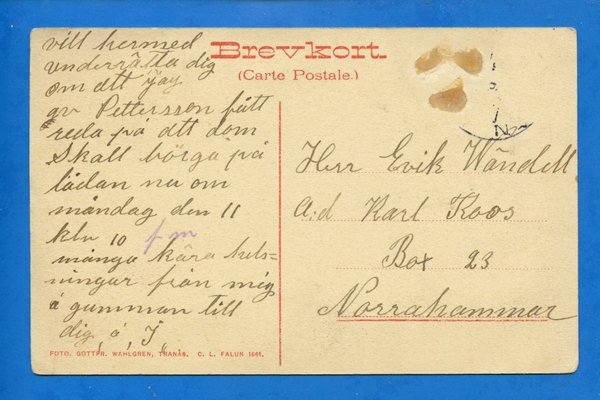 Brevkort.
(Carte Postale.)
vill hermed
underrätta dig
om att jag
av Pettersson fått
reda på att dom
Skall börja på
lådan nu om
måndag den 11
klu 10 f m
många kära hels=
ningar från mig
å gumman till
dig, å, J
Herr Evik Wändell
a:d Karl Koos
Box 23
Norrahammar
FOTO. GOTTFR. WAHLGREN, TRANÅS. C. L. FALUN 1661.